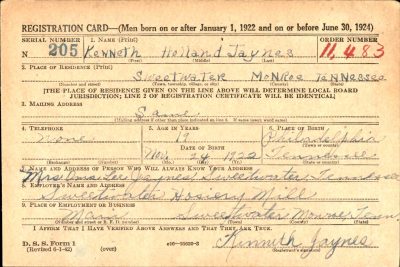 REGISTRATION CARD—(Men born on or after January 1, 1922 and on or before June 30, 1924)
SERIAL NUMBER 1. NAME (Print) ORDER NUMBER
N 205 Kenneth Holland Jaynes 11,483
(First) (Middle) (Last)
2. PLACE OF RESIDENCE (Print)
Sweetwater Monroe Tennessee
(Number and street) (Town, township, village, or city) (County) (State)
[THE PLACE OF RESIDENCE GIVEN ON THE LINE ABOVE WILL DETERMINE LOCAL BOARD
JURISDICTION; LINE 2 OF REGISTRATION CERTIFICATE WILL BE IDENTICAL]
3. MAILING ADDRESS
Same
(Mailing address if other than place indicated on line 2. If same insert word same)
4. TELEPHONE 5. AGE IN YEARS 6. PLACE OF BIRTH
None 19 Philadelphia
DATE OF BIRTH (Town or county)
24 1922 Tennessee
(Mo.) (Day) (Yr.) (State or country)
7. NAME AND ADDRESS OF PERSON WHO WILL ALWAYS KNOW YOUR ADDRESS
Mrs Jaynes Sweetwater Tennessee
8. EMPLOYER'S NAME AND ADDRESS
Sweetwater Hosiery Mill
9. PLACE OF EMPLOYMENT OR BUSINESS
Main Sweetwater Monroe Tenn.
(Number and street or R. F. D. number) (Town) (County) (State)
I AFFIRM THAT I HAVE VERIFIED ABOVE ANSWERS AND THAT THEY ARE TRUE.
D. S. S. Form 1
(Revised 6-1-42) (over) Kenneth Jaynes